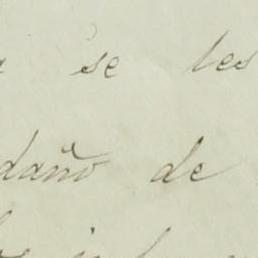 se les
daño de